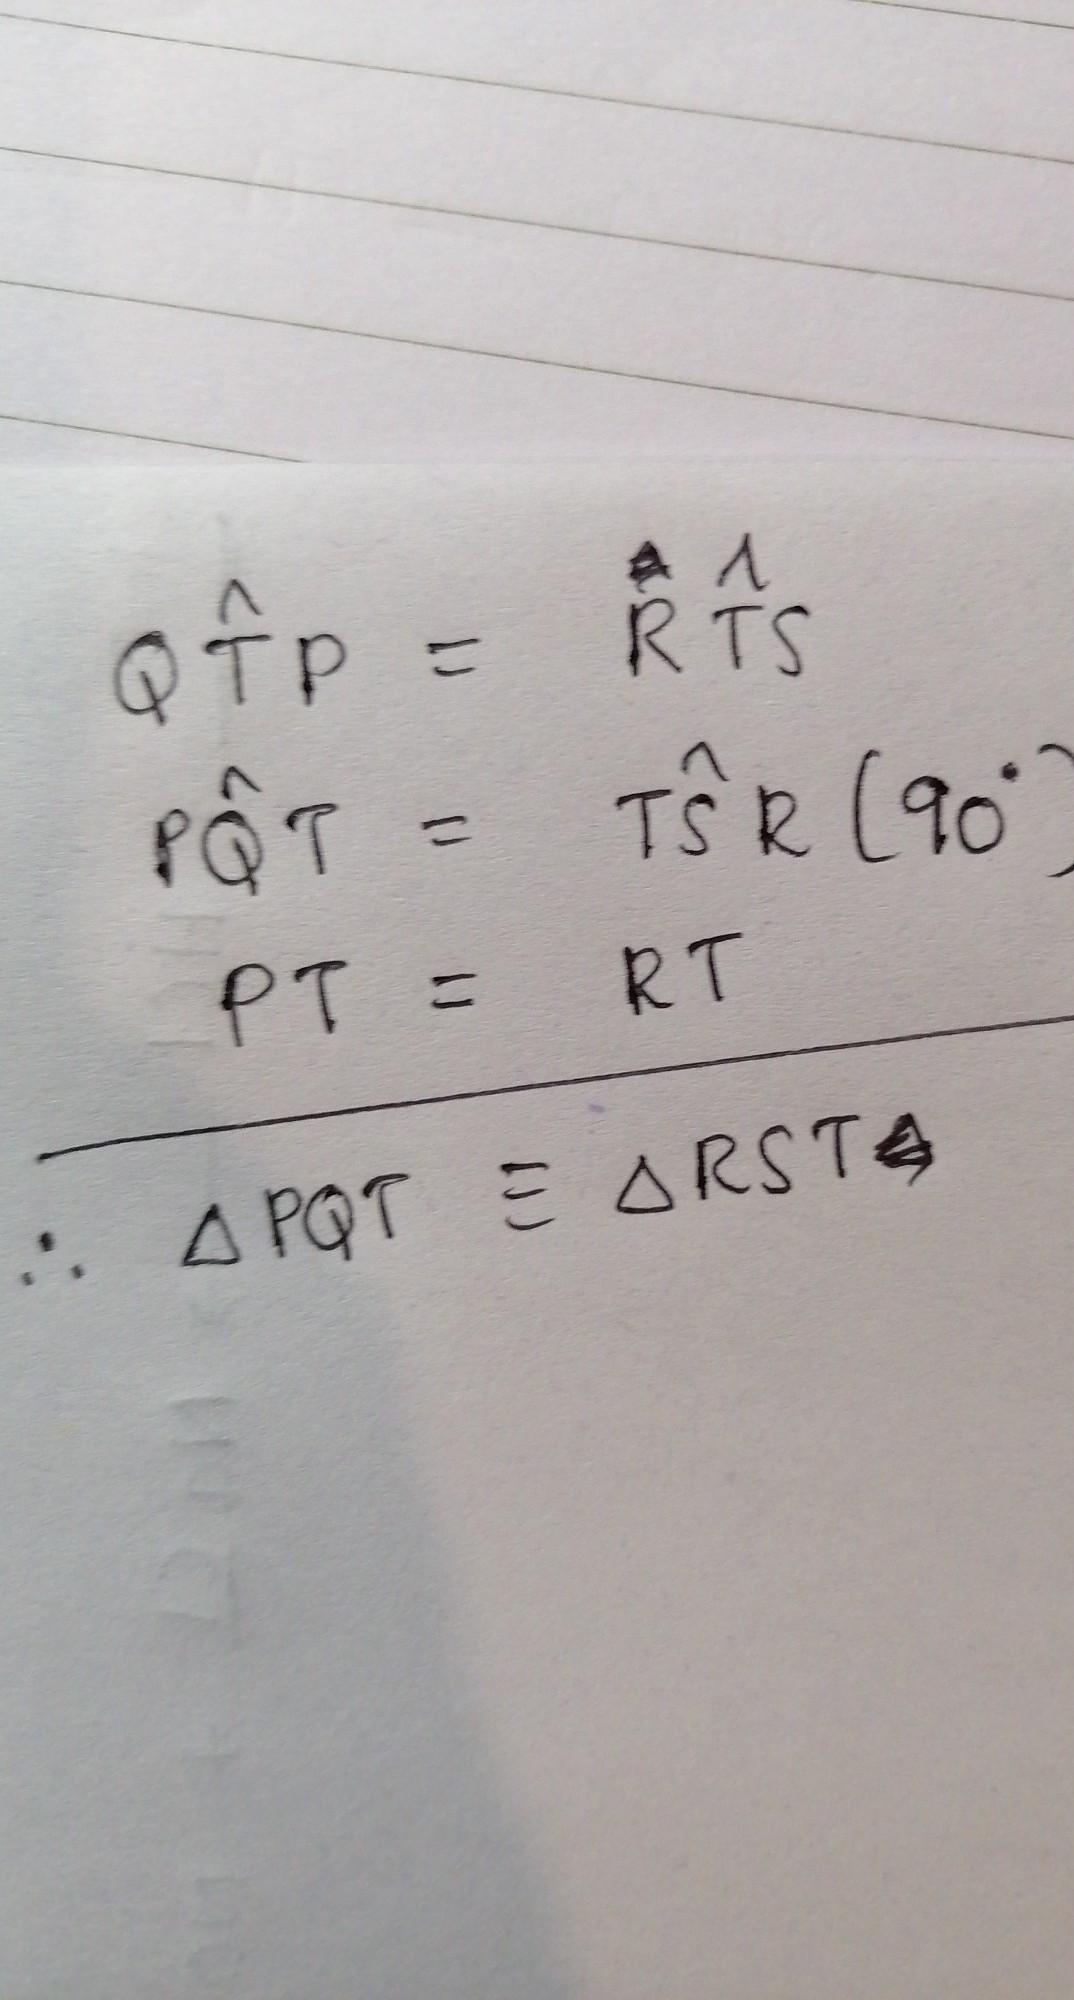 QT̂P = RT̂S
PQ̂T = TŜR (90°)
PT = RT
∴ △PQT ≡ △RST